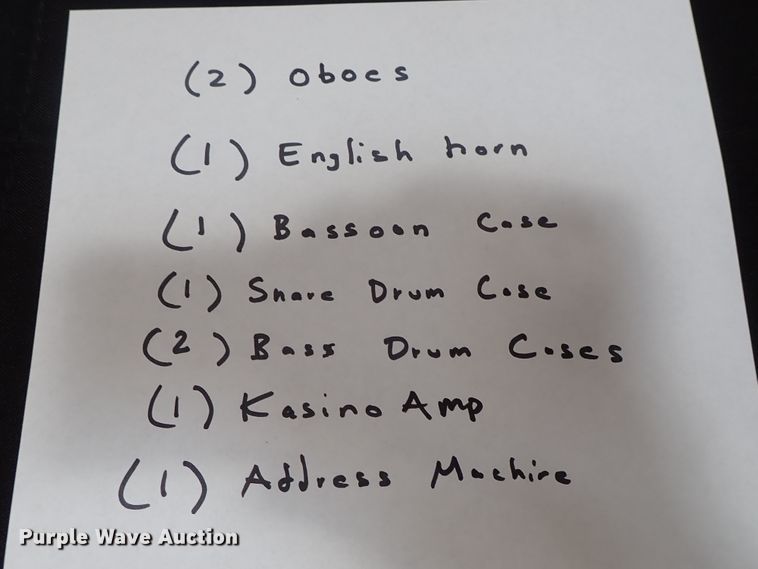 (2) Oboes
(1) English horn
(1) Bassoon Case
(1) Snare Drum Case
(2) Bass Drum Cases
(1) Kasino Amp
(1) Address Machine
Purple Wave Auction